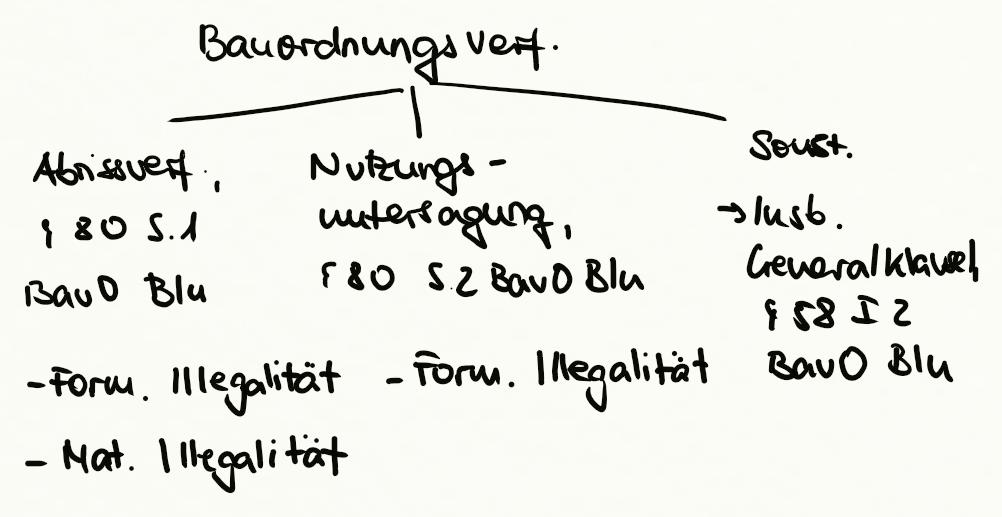 Bauordnungsverf.
Abrissverf.,
§ 80 S.1
BauO Bln
- Form. Illegalität
- Mat. Illegalität
Nutzungs-
untersagung,
§ 80 S.2 BauO Bln
- Form. Illegalität
Sonst.
→ Insb.
Generalklausel,
§ 58 I 2
BauO Bln